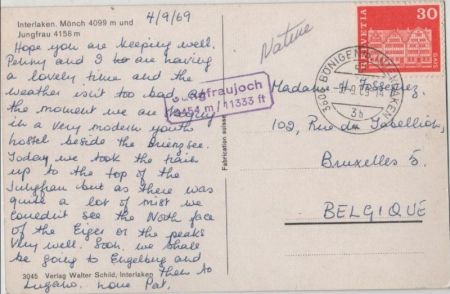 Interlaken. Mönch 4099 m und
Jungfrau 4158 m
4/9/69
Hope you are keeping well.
Penny and I are having
a lovely time and the
weather isn't too bad. At
the moment we are staying
in a very modern youth
hostel beside the
Today we took the train
up to the top of the
Jungfrau but as there was
quite a lot of mist we
couldn't see the North face
of the Eiger or the peaks
very well. Soon, we shall
be going to Engelberg and
then to
Lugano. Love Pat.
3045 Verlag Walter Schild, Interlaken
Fabrication suisse
Jungfraujoch
3454 m / 11333 ft
Native
HELVETIA
30
3806 BÖNIGEN
3b
Madame H.
102, Rue
Bruxelles 5.
BELGIQUE